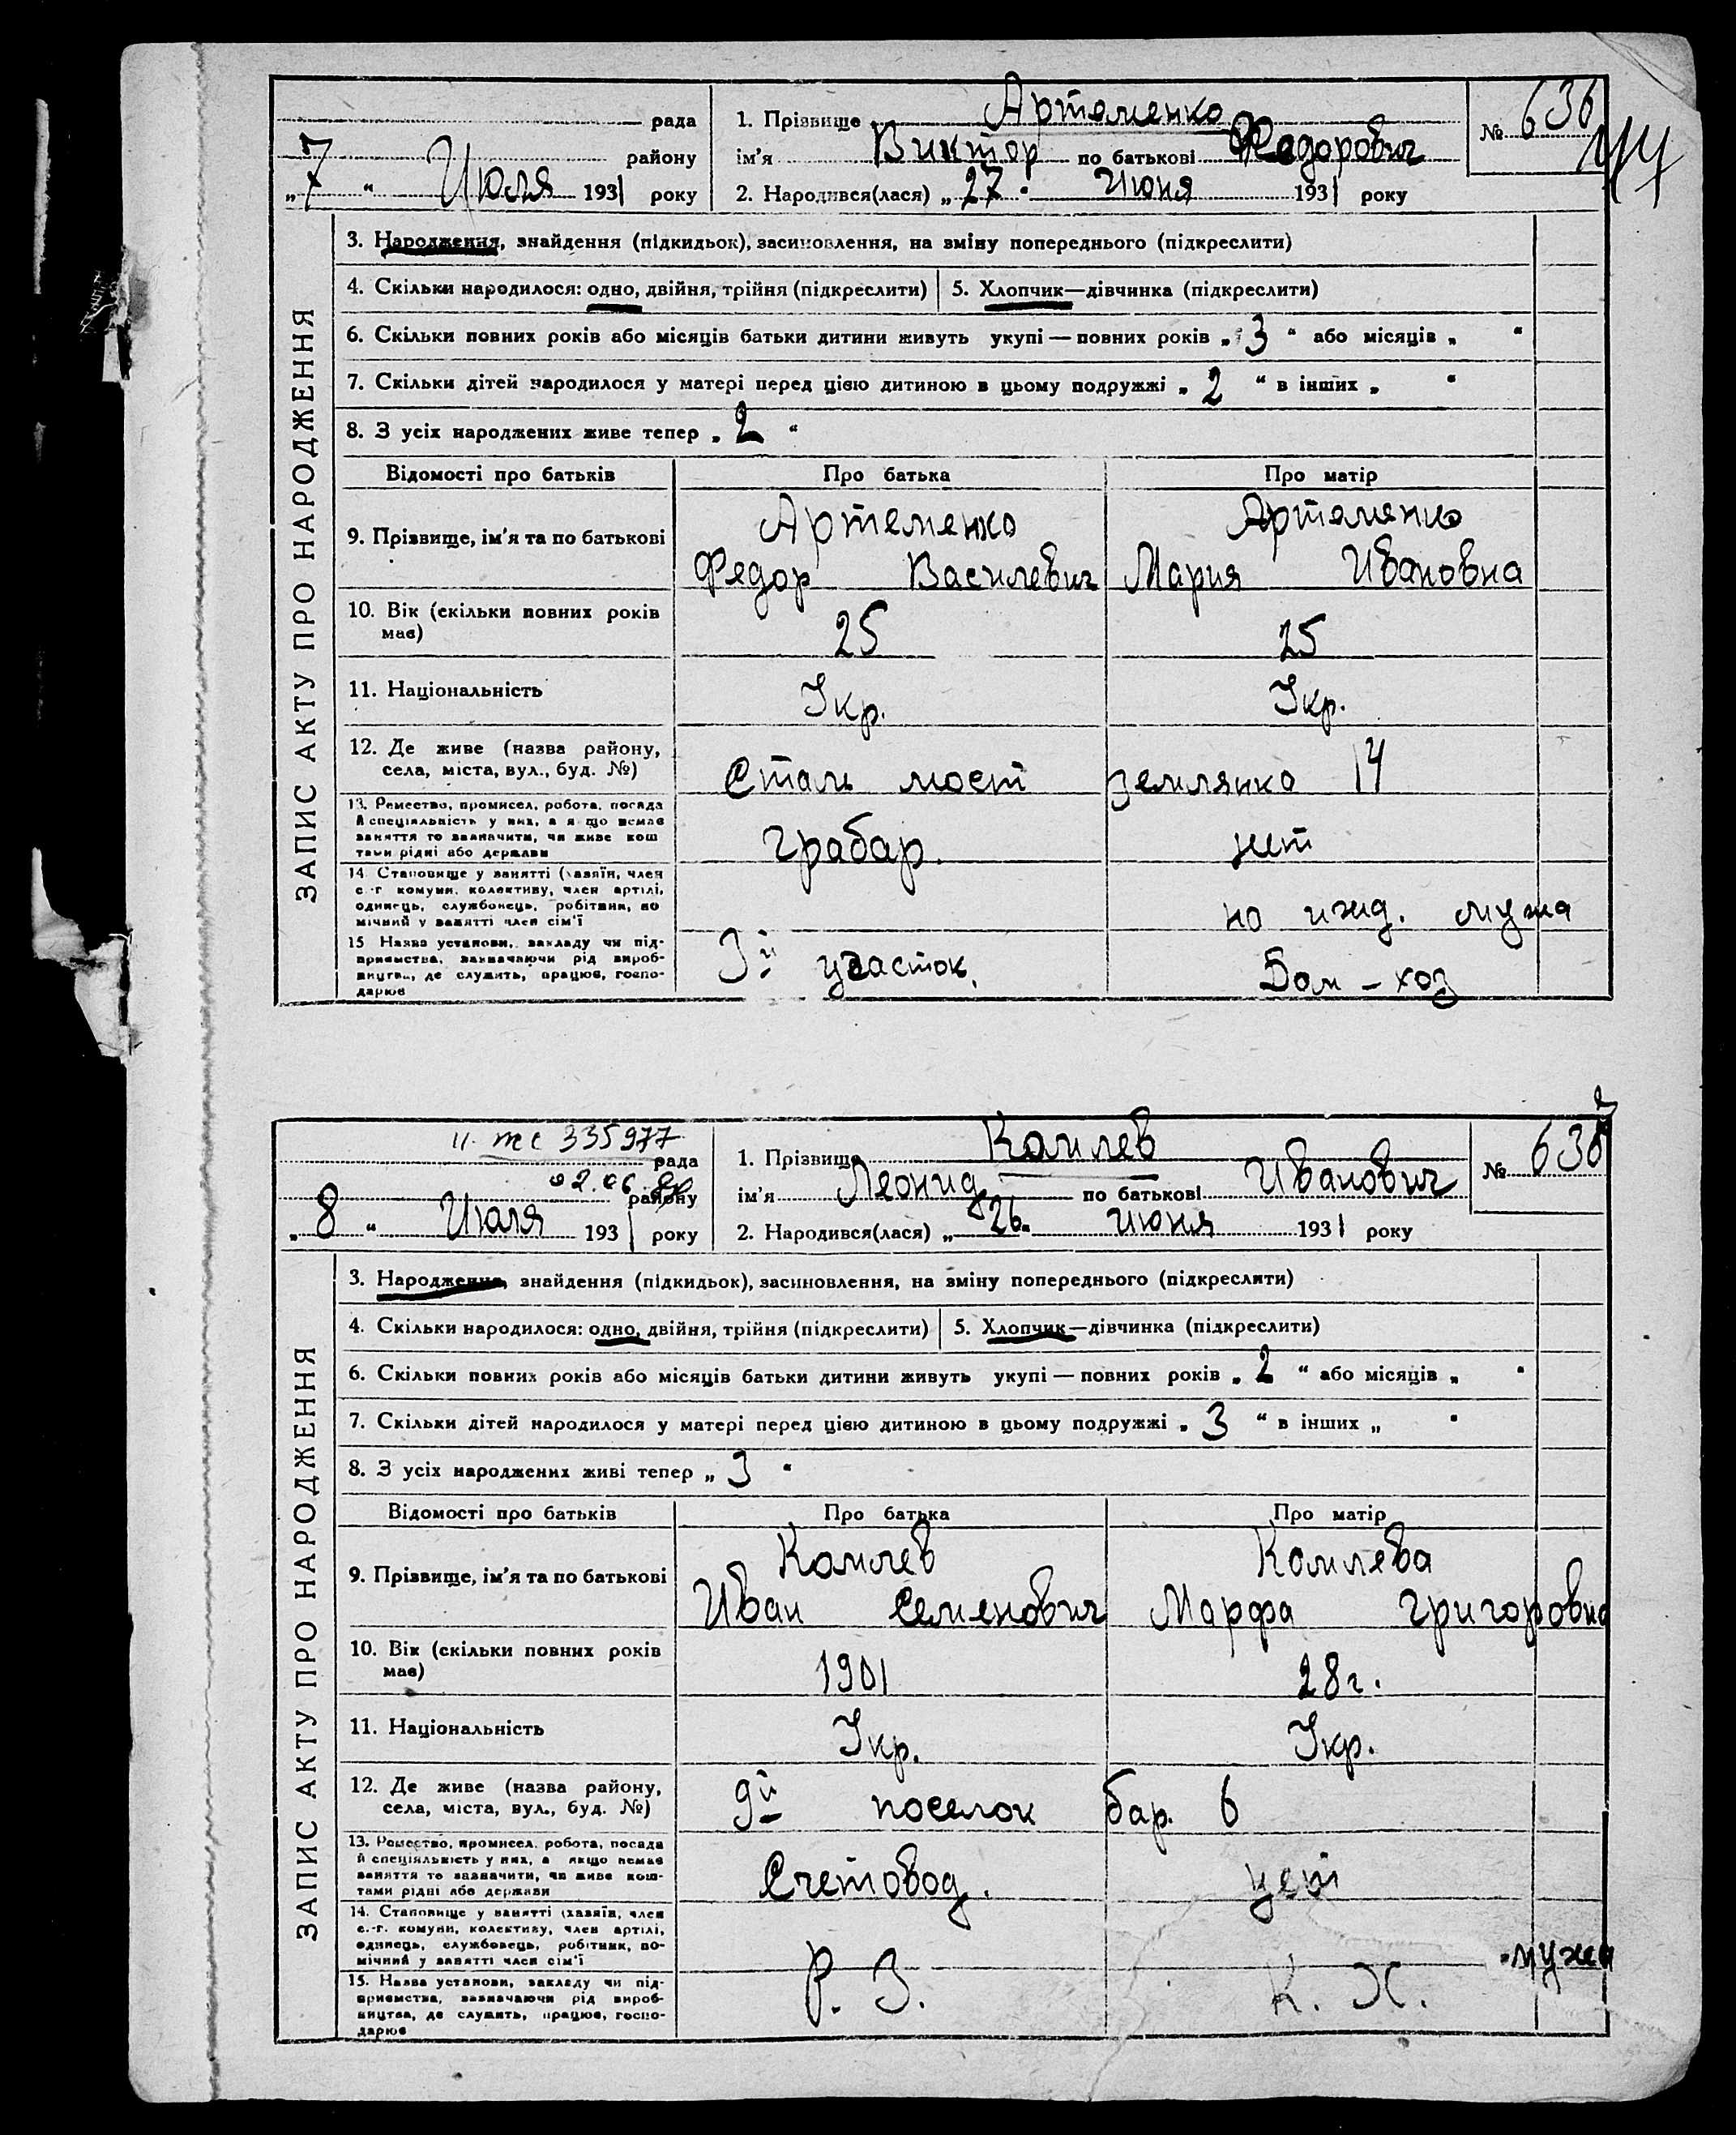 рада
1. Прізвище Артеменко
№ 636
району
ім'я Виктор по батькові Федорович
„7“ Июля 1931 року
2. Народився(лася) „27“ Июня 1931 року
ЗАПИС АКТУ ПРО НАРОДЖЕННЯ
3. Народження, знайдення (підкидьок), засиновлення, на зміну попереднього (підкреслити)
4. Скільки народилося: одно, двійня, трійня (підкреслити)
5. Хлопчик—дівчинка (підкреслити)
6. Скільки повних років або місяців батьки дитини живуть укупі — повних років „3“ або місяців „ “
7. Скільки дітей народилося у матері перед цією дитиною в цьому подружжі „2“ в інших „ “
8. З усіх народжених живе тепер „2“
Відомості про батьків Про батька Про матір
Артеменко Артеменко
9. Прізвище, ім'я та по батькові
Федор Василевич Мария Ивановна
10. Вік (скільки повних років
має)
25 25
11. Національність Укр. Укр.
12. Де живе (назва району,
села, міста, вул., буд. №)
Сталь мост землянка 14
13. Ремество, промисел, робота, посада
й спеціяльність у них, а якщо немає
заняття то зазначити, чи живе кош
тами рідні або держави
грабар. нет
14. Становище у занятті (хазяїн, член
с.-г. комуни, колективу, член артілі,
одинець, службовець, робітник, по
мічний у занятті член сім'ї
на ижд. мужа
15 Назва установи, закладу чи під-
приємства, зазначаючи рід вироб-
ництва, де служить, працює, госпо-
дарює
3й участок. Дом - хоз
II. же 335977
рада
1. Прізвище Комлев
№
02.06.
району
ім'я Леонид по батькові Иванович
„8“ Июля 1931 року
2. Народився(лася) „26“ июня 1931 року
ЗАПИС АКТУ ПРО НАРОДЖЕННЯ
3. Народження, знайдення (підкидьок), засиновлення, на зміну попереднього (підкреслити)
4. Скільки народилося: одно, двійня, трійня (підкреслити)
5. Хлопчик—дівчинка (підкреслити)
6. Скільки повних років або місяців батьки дитини живуть укупі — повних років „2“ або місяців „ “
7. Скільки дітей народилося у матері перед цією дитиною в цьому подружжі „3“ в інших „ “
8. З усіх народжених живі тепер „3“
Відомості про батьків Про батька Про матір
Комлев Комлева
9. Прізвище, ім'я та по батькові
Иван Семенович Марфа Григоровна
10. Вік (скільки повних років
має)
1901 28 г.
11. Національність Укр. Укр.
12. Де живе (назва району,
села, міста, вул., буд. №)
9й поселок бар. 6
13. Ремество, промисел, робота, посада
й спеціяльність у них, а якщо немає
заняття то зазначити, чи живе кош-
тами рідні або держави
Счетовод. нет
14. Становище у занятті (хазяїн, член
с.-г. комуни, колективу, член артілі,
одинець, службовець, робітник, по-
мічний у занятті член сім'ї
мужа
15. Назва установи, закладу чи під-
приємства, зазначаючи рід вироб-
ництва, де служить, працює, госпо-
дарює
Р. З. К. Х.